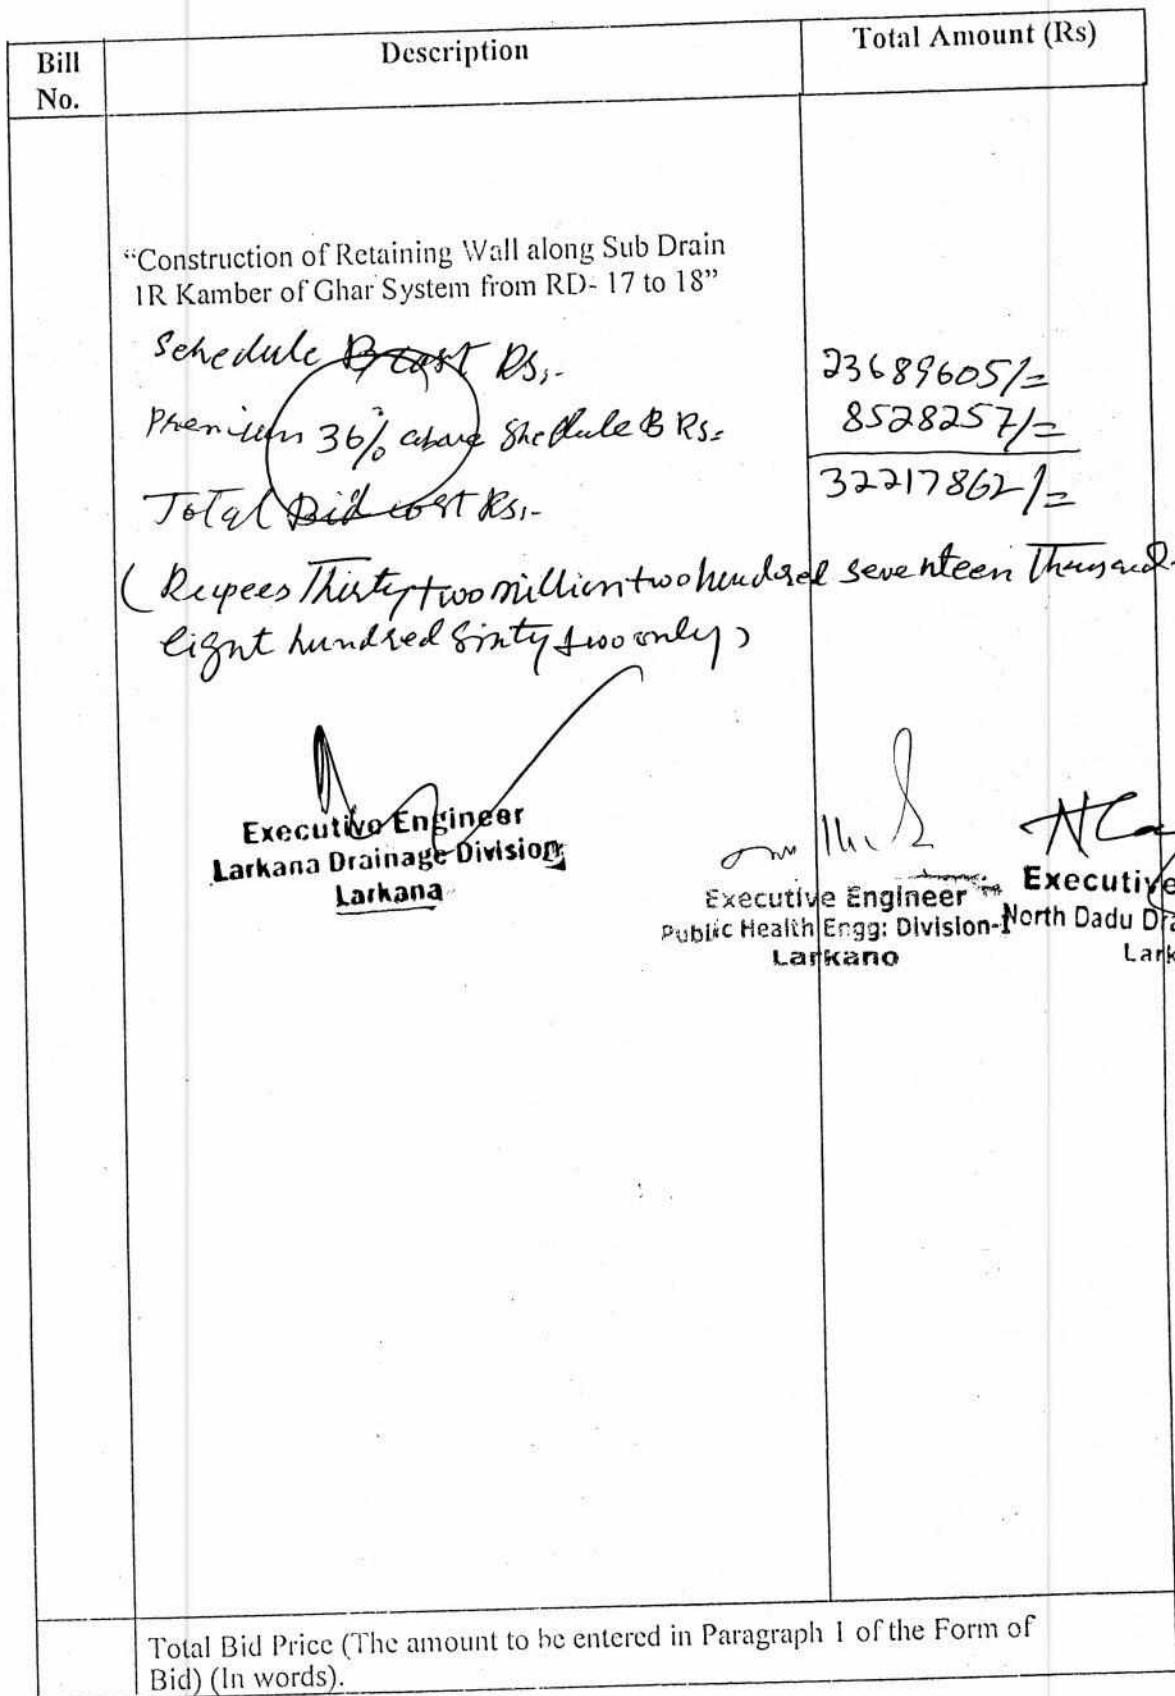 Bill No.
Description
Total Amount (Rs)
“Construction of Retaining Wall along Sub Drain
1R Kamber of Ghar System from RD- 17 to 18”
Schedule B cost Rs,- 23689605/=
Premium 36% above Shedule B Rs= 8528257/=
Total Bid cost Rs,- 32217862/=
(Rupees Thirty two million two hundred seventeen Thousand
eight hundred sixty two only)
Executive Engineer
Larkana Drainage Division
Larkana
Executive Engineer
Public Health Engg: Division-I
Larkano
Executive
North Dadu Dra
Lark
Total Bid Price (The amount to be entered in Paragraph 1 of the Form of
Bid) (In words).